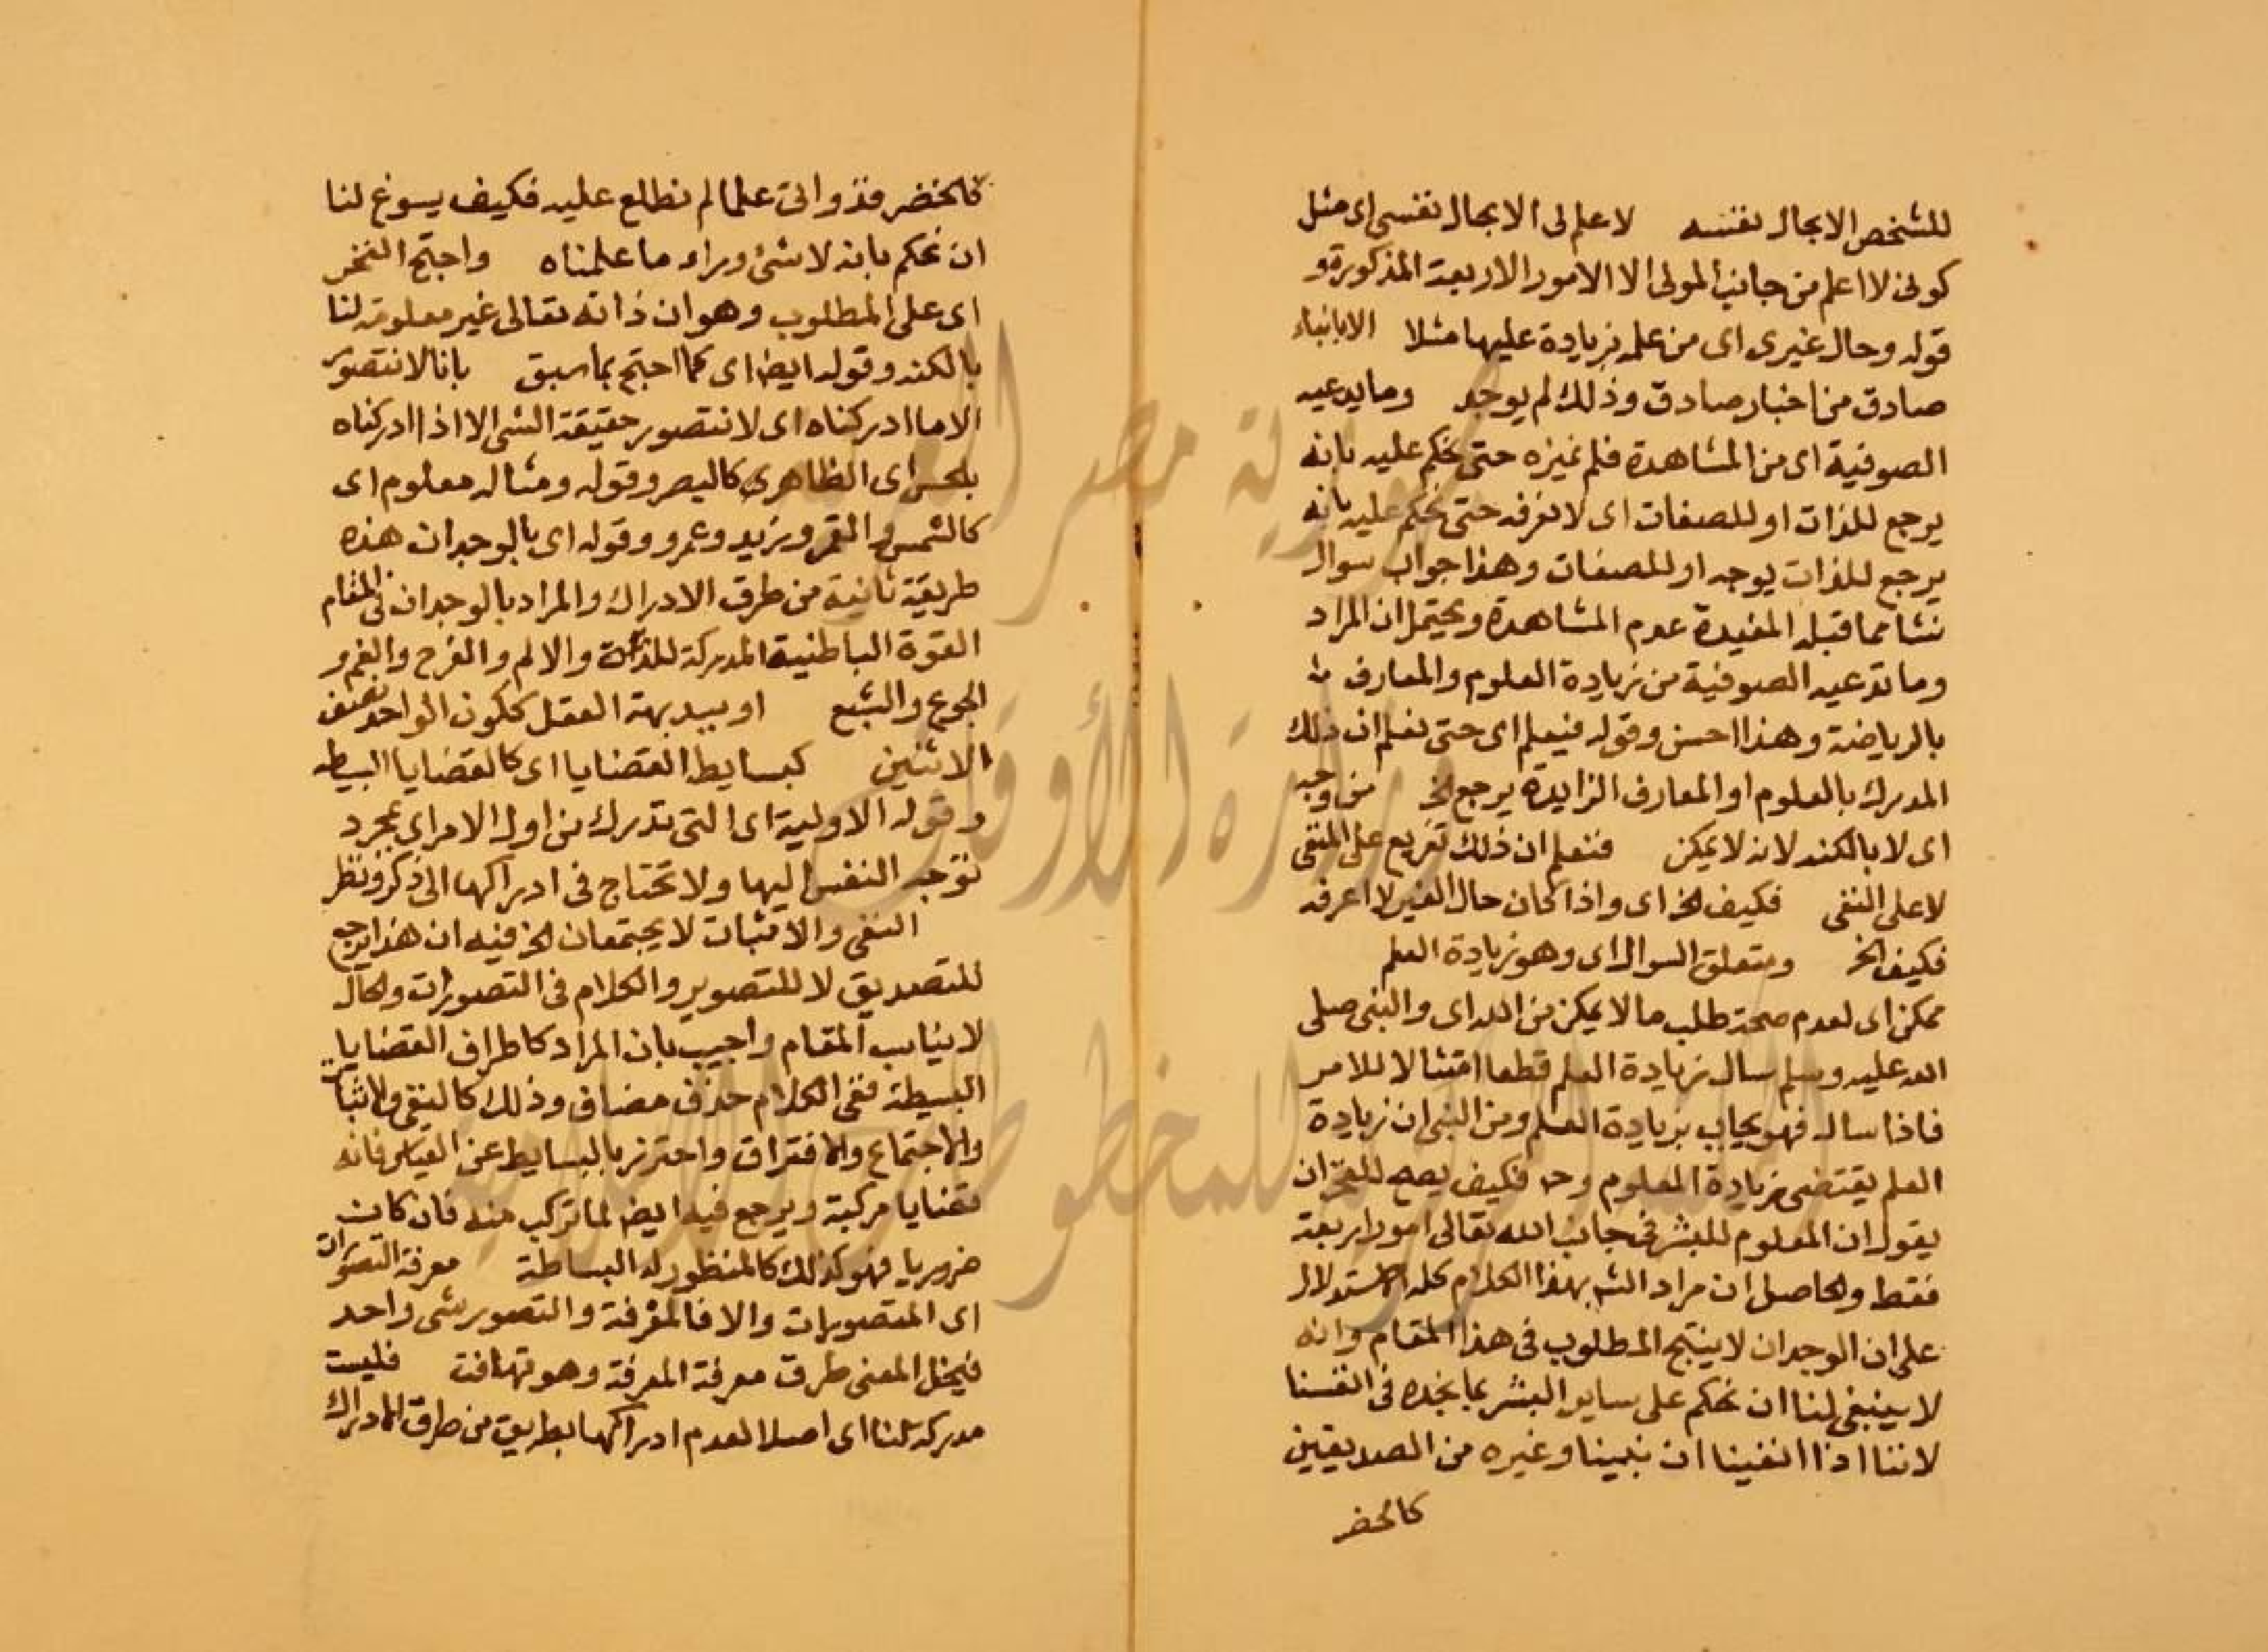 للشخص الابحال نفسه لا علم لى الابحال نفسى اى مثل
كونى لا اعلم من جانب المولى الا الامور الاربعة المذكورة و
قوله وحال غيرى اى من علمه بزيادة عليها مثلا الا بانباء
صادق من اخبار صادق وذلك لم يوجد وما يدعيه
الصوفية اى من المشاهدة فلم نميزه حتى نحكم عليه بانه
يرجع للذات او للصفات اى لا نعرفه حتى نحكم عليه بانه
يرجع للذات بوجه او للصفات وهذا جواب سوال
نشا مما قبله المفيدة عدم المشاهدة ويحتمل ان المراد
وما تدعيه الصوفية من زيادة العلوم والمعارف
بالرياضة وهذا احسن وقوله فنيعلم اى حتى نعلم ان ذلك
المدرك بالعلوم او المعارف الزايدة يرجع الخ من وجه
اى لا بالكنه لانه لا يمكن فنعلم ان ذلك تفريع على المنفى
لا على النفى فكيف الخ اى واذا كان حال الغير لا اعرفه
فكيف الخ ومتعلق السوال اى وهو زيادة العلم
ممكن اى لعدم صحة طلب ما لا يمكن من الله اى والنبى صلى
الله عليه وسلم سال زيادة العلم قطعا امتثالا للامر
فاذا ساله فهو يجاب بزيادة العلم ومن البين ان زيادة
العلم يقتضى زيادة المعلوم وح فكيف يصح للفخر ان
يقول ان المعلوم للبشر فى جانب الله تعالى امور اربعة
فقط والحاصل ان مراد الش بهذا الكلام كله الاستدلال
على ان الوجدان لا ينتج المطلوب فى هذا المقام وانه
لا ينبغى لنا ان نحكم على ساير البشر بما نجده فى انفسنا
لاننا اذا الفينا ان نبينا وغيره من الصديقين
كالخضر
كالخضر قد اوتى علما لم نطلع عليه فكيف يسوغ لنا
ان نحكم بانه لا شئ وراء ما علمناه واحتج الفخر
اى على المطلوب وهو ان ذاته تعالى غير معلومة لنا
بالكنه وقوله ايضا اى كما احتج بما سبق بانا لا نتصور
الا ما ادركناه اى لا نتصور حقيقة الشى الا اذا ادركناه
بالحس اى الظاهرى كالبصر وقوله ومثاله معلوم اى
كالشمس والقمر وزيد وعمرو وقوله اى بالوجدان هذه
طريقة ثانية من طرق الادراك والمراد بالوجدان فى المقام
القوة الباطنية المدركة للذة والالم والفرح والغم و
الجوع والشبع او ببديهة العقل ككون الواحد نصف
الاثنين كبسايط القضايا اى كالقضايا البسيطة
وقوله الاولية اى التى تدرك من اول الامر اى بمجرد
توجه النفس اليها ولا تحتاج فى ادراكها الى ذكر ونظر
النفى والاثبات لا يجتمعان الخ فيه ان هذا يرجع
للتصديق لا للتصوير والكلام فى التصورات والحال
لا يناسب المقام واجيب بان المراد كاطراف القضايا
البسيطة ففى الكلام حذف مضاف وذلك كالنفى والاثبات
والاجتماع والافتراق واحترز بالبسايط عن القياس فانه
قضايا مركبة ويرجع فيه ايض لما تركب منه فان كانت
ضروريا فهو كذلك كالمنظور له البساطة معرفة التصورات
اى المتصورات والا فالمعرفة والتصور شى واحد
فيخل المعنى طرق معرفة المعرفة وهو تهافت فليست
مدركة لنا اى اصلا لعدم ادراكها بطريق من طرق الادراك